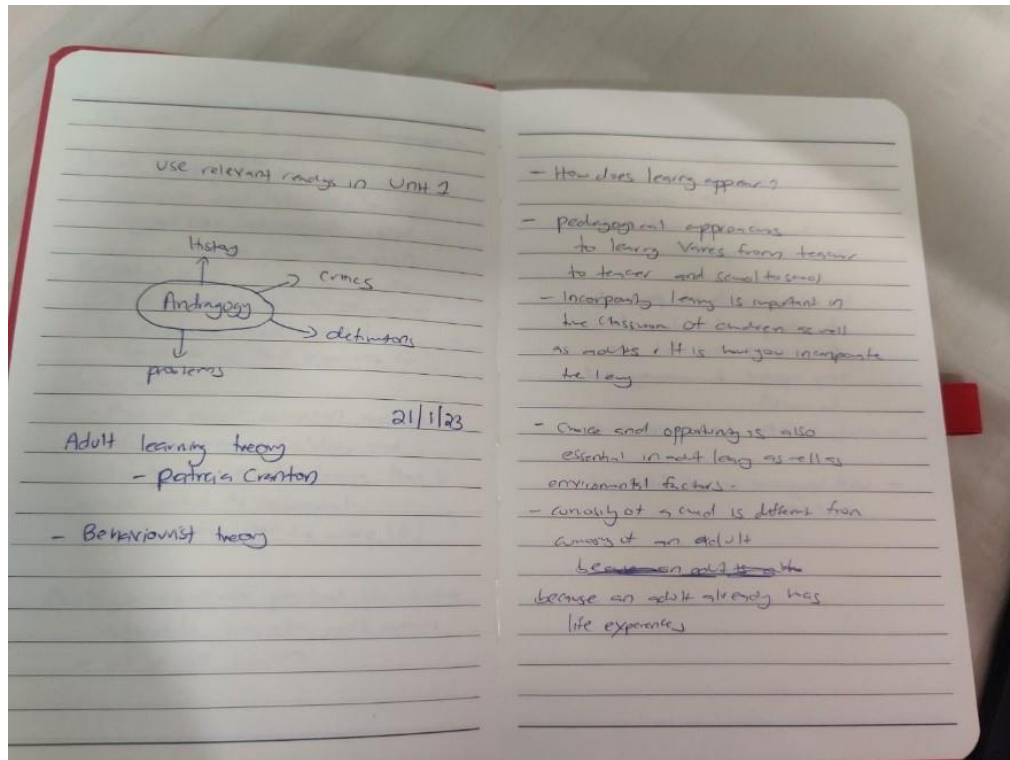 use relevant readgs in Unit 2
History
critics
Andragogy
definitions
problems
21/1/23
Adult learning theory
- Patricia Cranton
- Behaviourist theory
- How does learng appear?
- pedagogical approaches
to learng varies from teacher
to teacher and school to school
- Incorporatg learng is important in
the classroom of children as well
as adults. It is how you incorporate
the learng
- Choice and opportunity is also
essential in adult learng as well as
environmental factors.
- curiosity of a child is different from
curiosity of an adult
because an adult
because an adult already has
life experiences